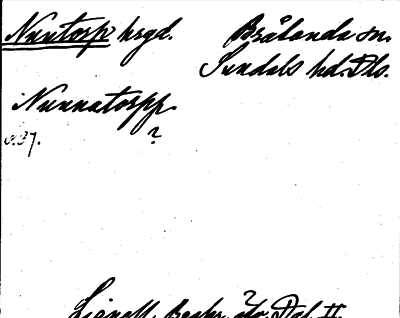 Nuntorp hrgd. Brålanda sn.
Sundals hd. Dls.
Nunnatorpp
?
Lignell, Beskr. Dal II